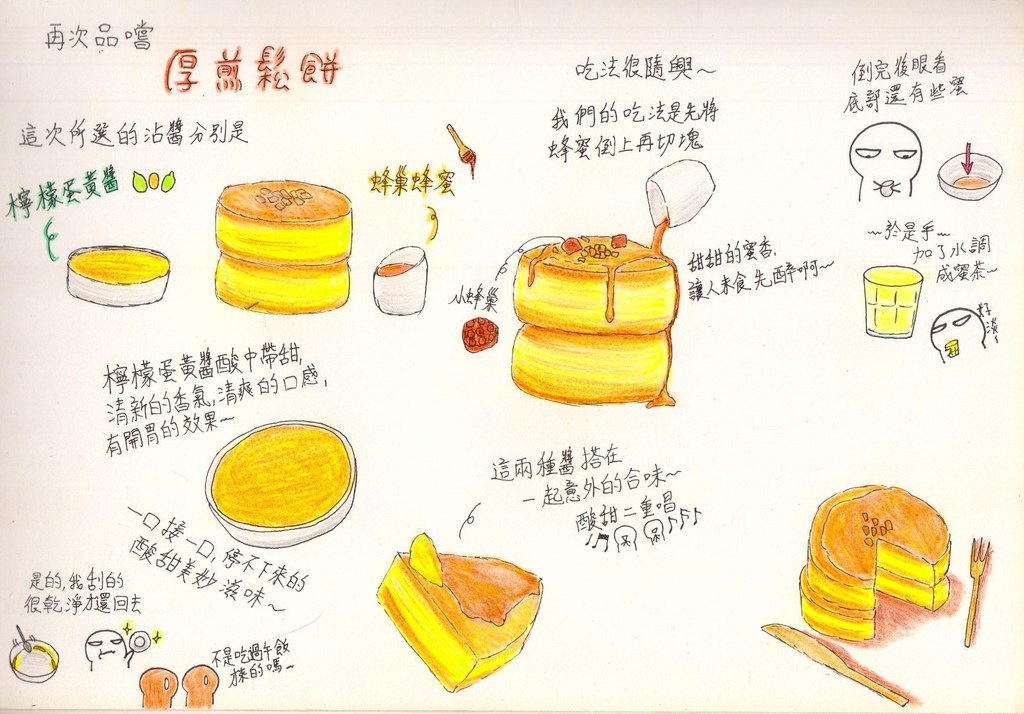 再次品嚐
厚煎鬆餅
這次所選的沾醬分別是
檸檬蛋黃醬
蜂巢蜂蜜
檸檬蛋黃醬酸中帶甜,
清新的香氣,清爽的口感,
有開胃的效果~
一口接一口,停不下來的
酸甜美妙滋味~
是的,我刮的
很乾淨才還回去
不是吃過午飯
來的嗎~
吃法很隨興~
我們的吃法是先將
蜂蜜倒上再切塊
小蜂巢
甜甜的蜜香,
讓人未食先醉啊~
這兩種醬搭在
一起意外的合味~
酸甜二重唱
倒完後眼看
底部還有些蜜
~於是乎...
加了水調
成蜜茶~